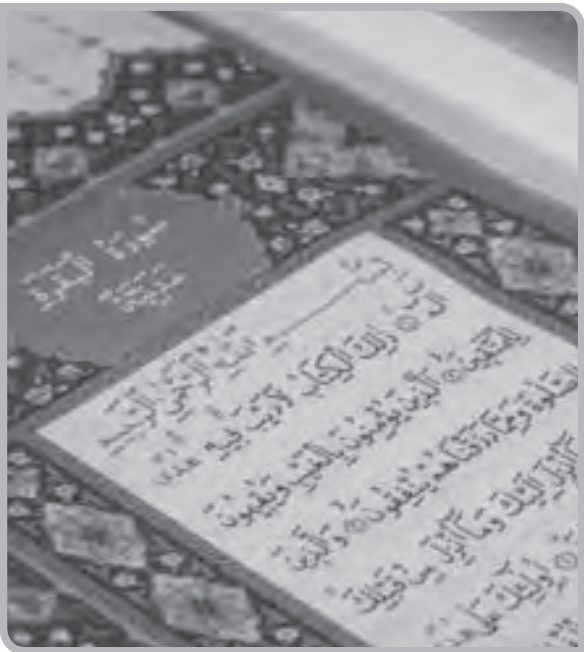 سُورَةُ الْبَقَرَةِ
بِسْمِ اللَّهِ الرَّحْمَٰنِ الرَّحِيمِ
الٓمٓ ۝ ذَٰلِكَ الْكِتَابُ لَا رَيْبَ فِيهِ هُدًى
لِلْمُتَّقِينَ ۝ الَّذِينَ يُؤْمِنُونَ بِالْغَيْبِ وَيُقِيمُونَ
الصَّلَاةَ وَمِمَّا رَزَقْنَاهُمْ يُنفِقُونَ ۝ وَالَّذِينَ
أُنزِلَ إِلَيْكَ وَمَا أُنزِلَ مِن قَبْلِكَ
أُولَٰئِكَ عَلَىٰ هُدًى